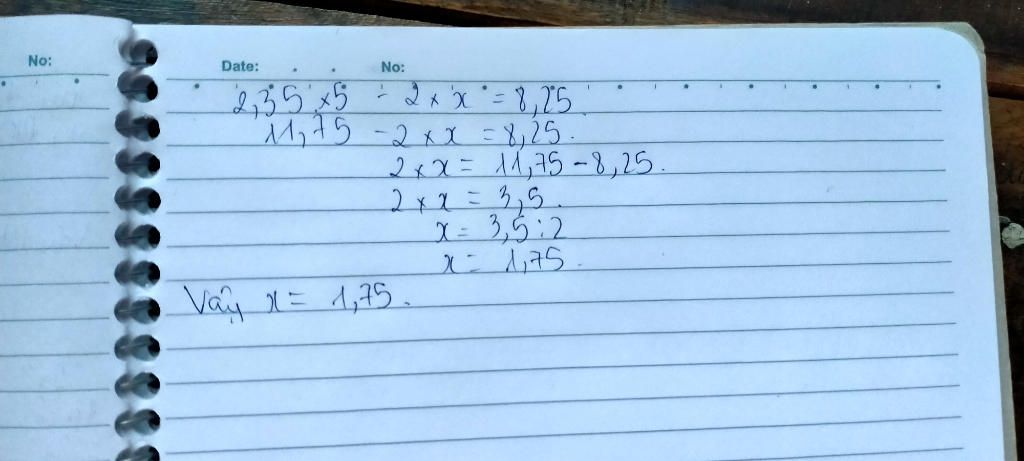 No:
Date: No:
2,35 x 5 - 2 x x = 8,25
11,75 - 2 x x = 8,25.
2 x x = 11,75 - 8,25.
2 x x = 3,5.
x = 3,5 : 2
x = 1,75.
Vậy x = 1,75.